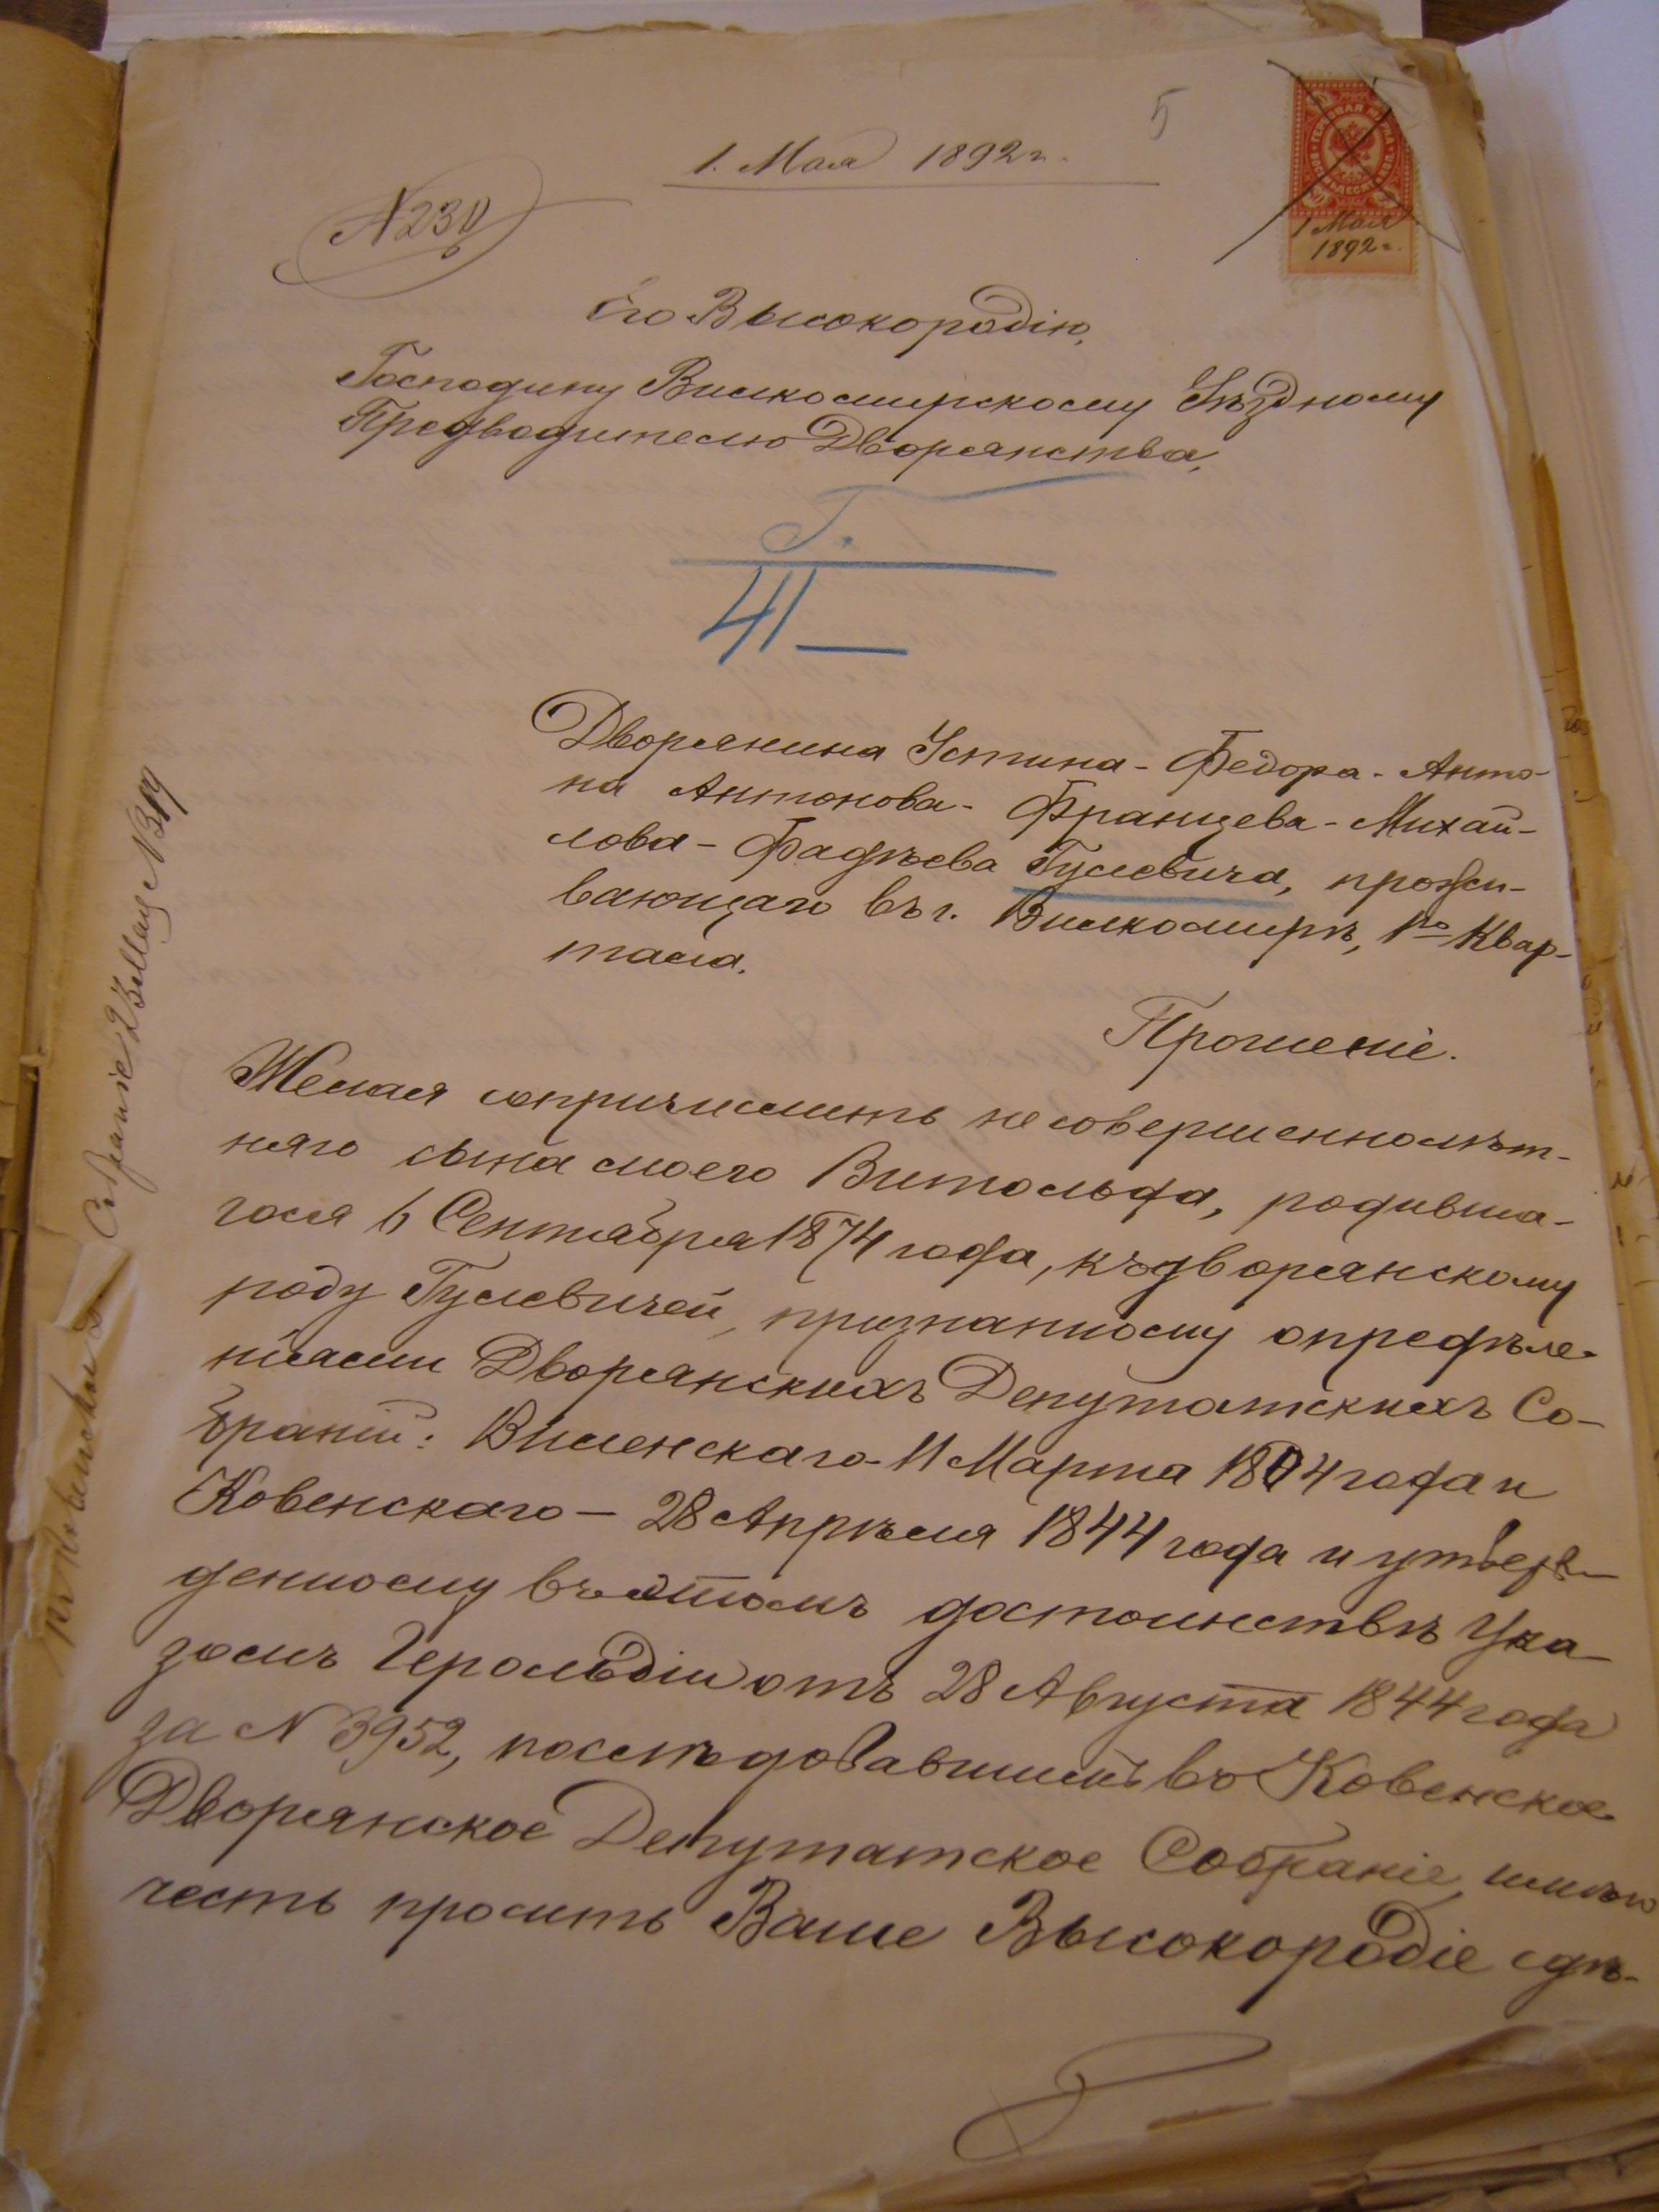 5
1. Мая 1892 г.
N 230
ГЕРБОВАЯ МАРКА
ВОСЕМЬДЕСЯТЪ КОП.
1 Мая
1892 г.
Его Высокородію,
Господину Вилкомирскому Уѣздному
Предводителю Дворянства,
Г.
41
Дворянина Устина-Федора-Анто-
на Антонова-Францева-Михай-
лова-Фадѣева Гулевича, прожи-
вающаго въ г. Вилкомирѣ, 1го Квар-
тала.
Прошеніе.
Желая сопричислить несовершеннолѣт-
няго сына моего Витольда, родивша-
гося 6 Сентября 1874 года, къ дворянскому
роду Гулевичей, признанному опредѣле-
ніями Дворянскихъ Депутатскихъ Со-
браній: Виленскаго-11 Марта 1804 года и
Ковенскаго-28 Апрѣля 1844 года и утверж-
денному въ этомъ достоинствѣ Ука-
зомъ Герольдіи отъ 28 Августа 1844 года
за N 3952, послѣдовавшимъ въ Ковенское
Дворянское Депутатское Собраніе, имѣю
честь просить Ваше Высокородіе сдѣ-
Собраніе 2 Мая N